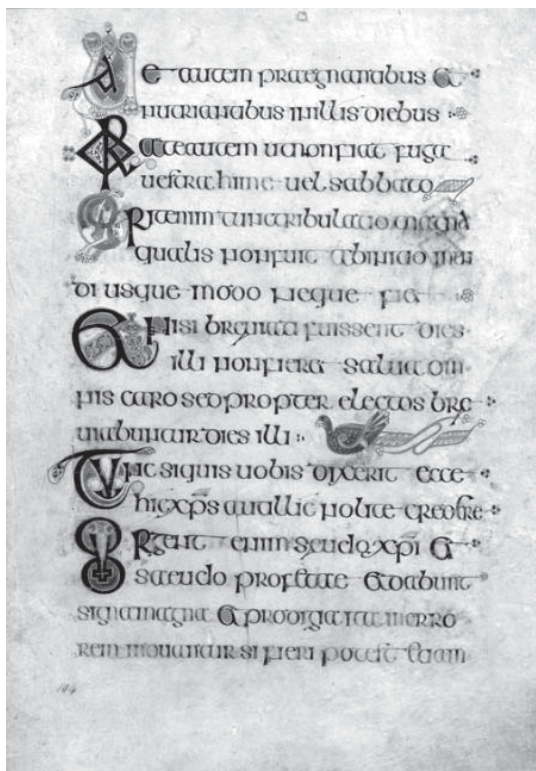 Uae autem praegnantibus et
nutriantibus inillis diebus
Orate autem ut non fiat fuga
uestra hime uel sabbato
Erit enim tunc tribulatio magna
qualis non fuit ab initio mun
di usque modo neque fiet
Et nisi breuiati fuissent dies
illi non fieret salua om
nis caro sed propter electos bre
uiabuntur dies illi
Tunc siquis uobis dixerit ecce
hic xps aut illic nolite credere
Surgent enim seudo xpi et
saeudo profetae et dabunt
signa magna et prodigia ita ut in erro
rem mouantur si fieri potest etiam
104